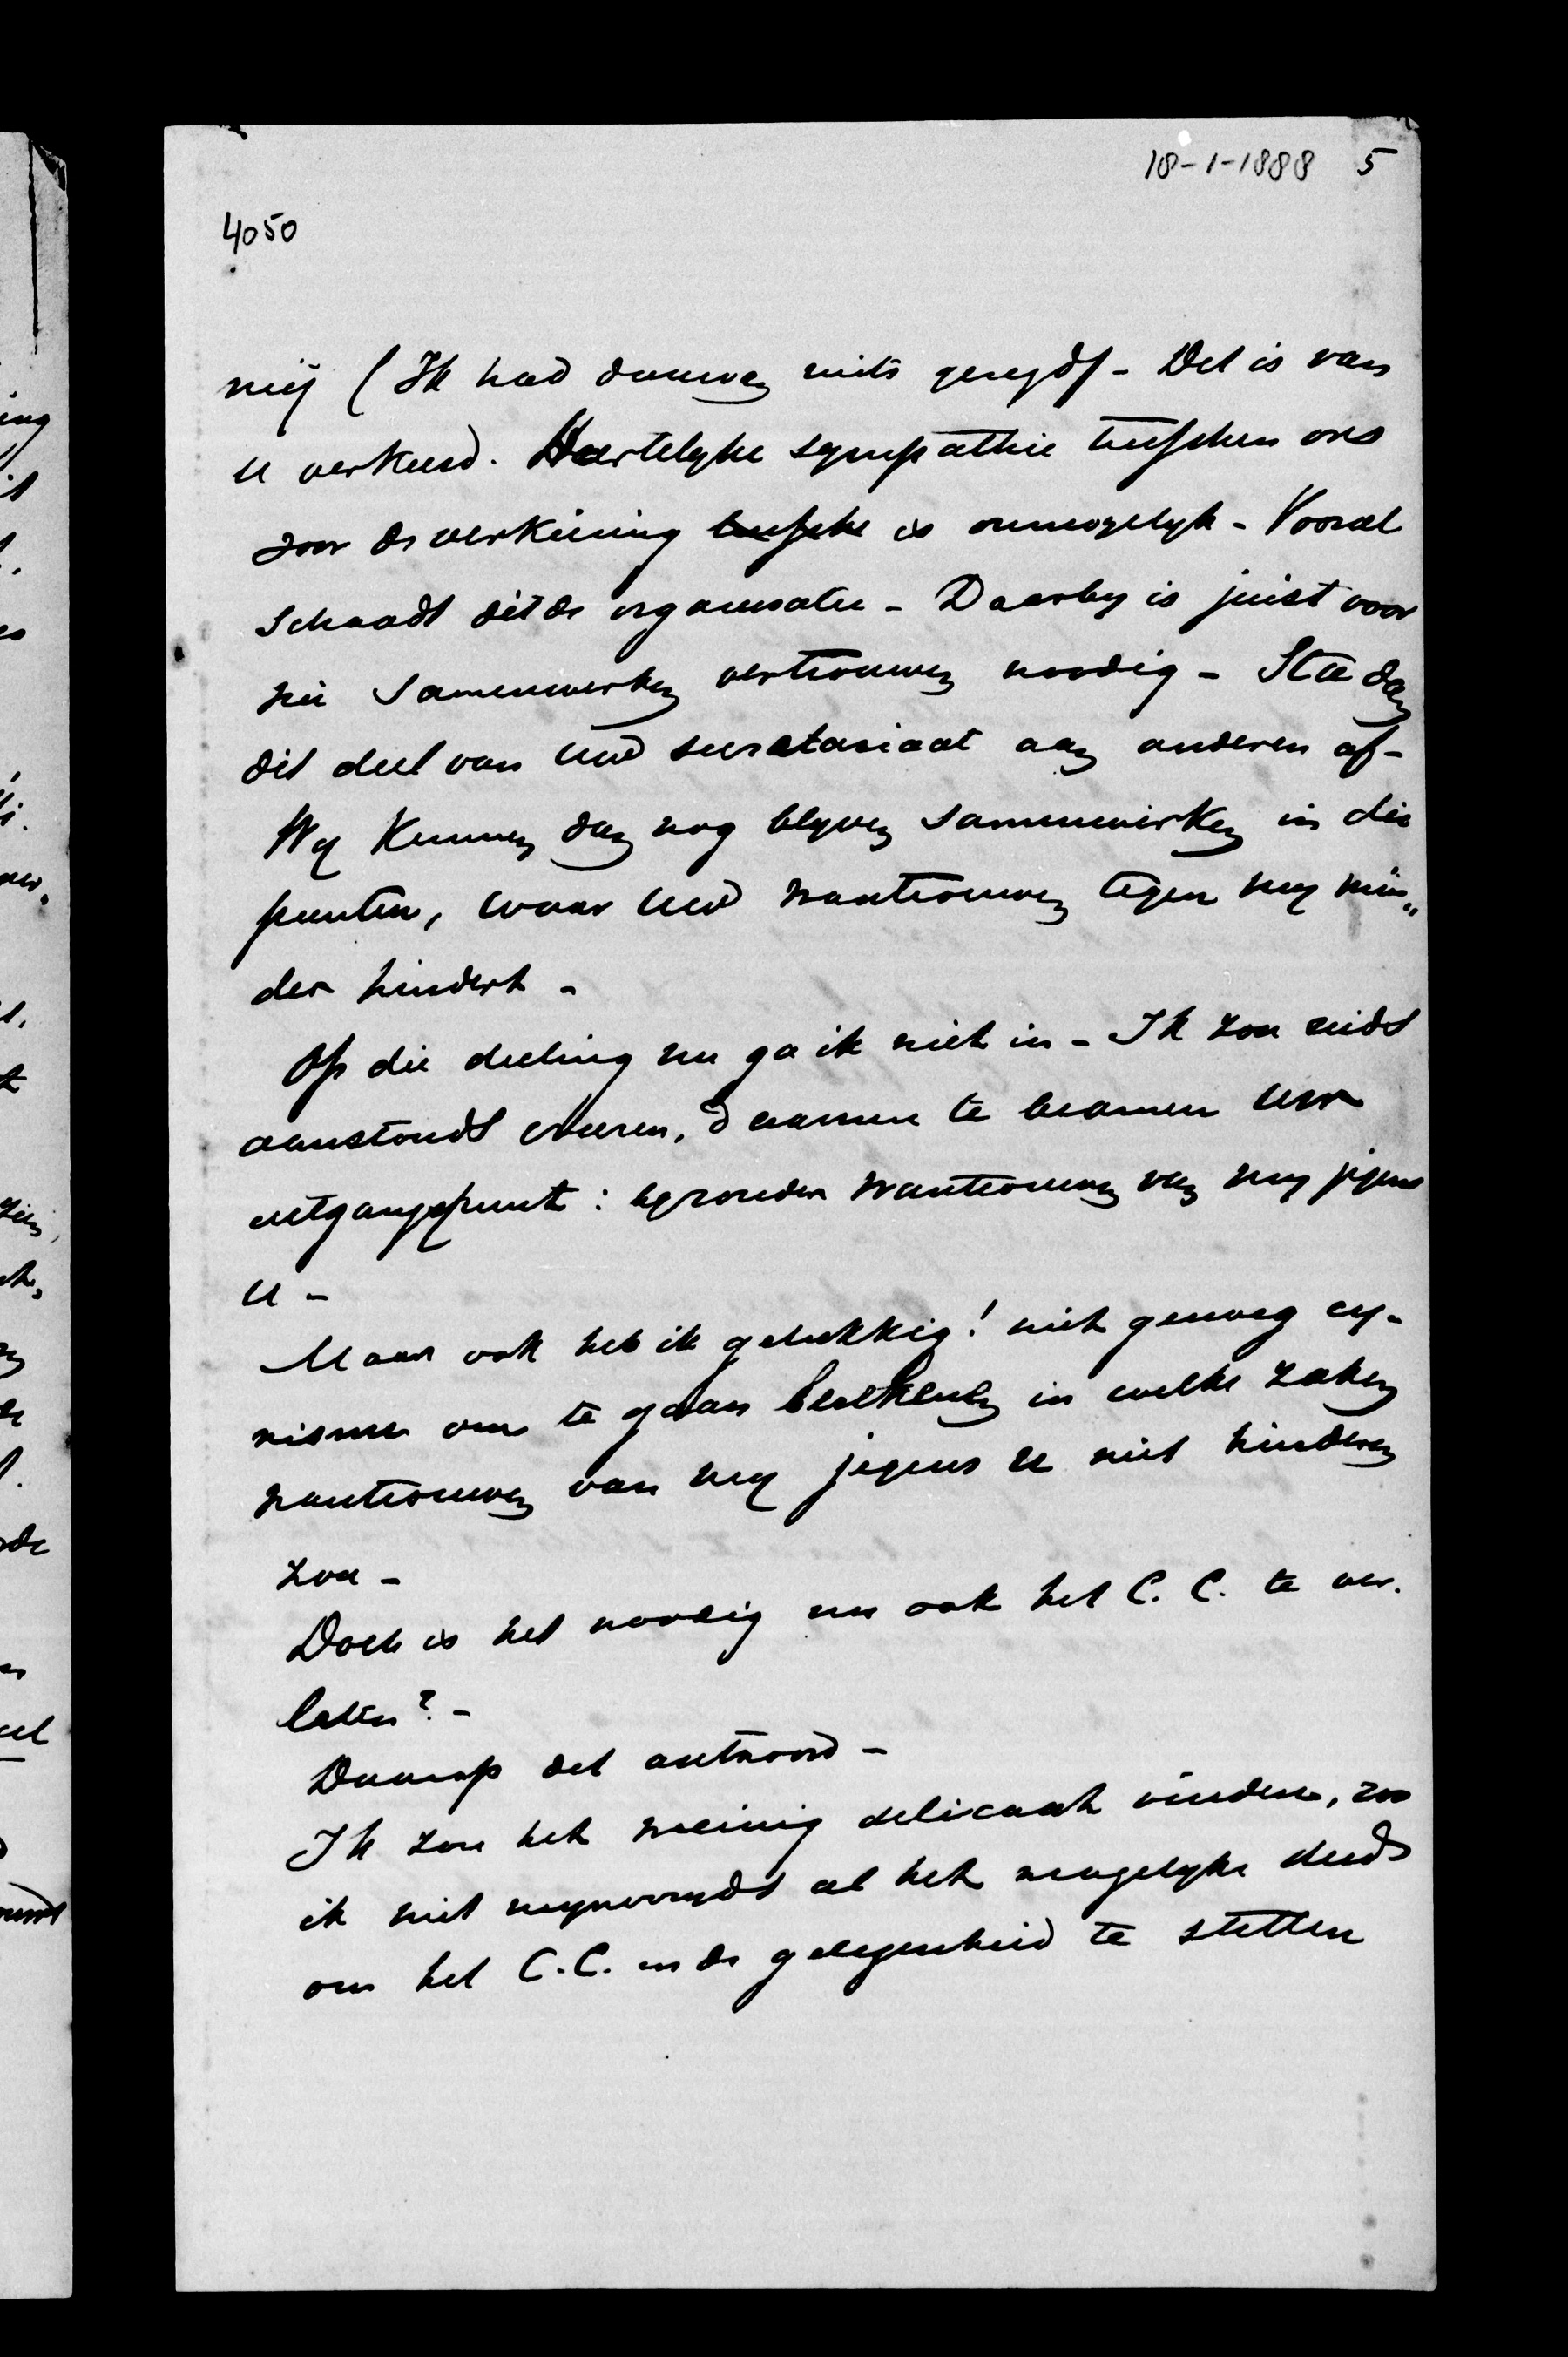 18-1-1888 5
4050
mij (Ik had daarvan niets gezegd) - Det is van
u verkeerd. Hartelyke sympathie tusschen ons
voor de verkiezing tussche is onmogelyk - Vooral
schaadt dit de organisatie - Daarby is juist voor
die samenwerken vertrouwen noodig - Sta dan
dit deel van Uw secretariaat aan anderen af -
Wy kunnen dan nog blyven samenwerken in die
punten, waar Uw wantrouwen tegen my min„
der hindert -
Op die deeling nu ga ik niet in - Ik zou reids
aanstonds eveneens, daarmee te beamen Uw
uitgangspunt: byzonder wantrouwen van my jegens
u -
Maar ook heb ik gelukkig! niet genoeg cy-
nisme om te gaan berekenen in welke zaken
wantrouwen van my jegens u niet hinderen
zou -
Doch is het noodig nu ook het C. C. te ver-
laten? -
Daarop dit antwoord -
Ik zou het weinig delicaat vinden, zoo
ik niet mynerzyds al het mogelyke deed
om het C.C. in de gelegenheid te stellen